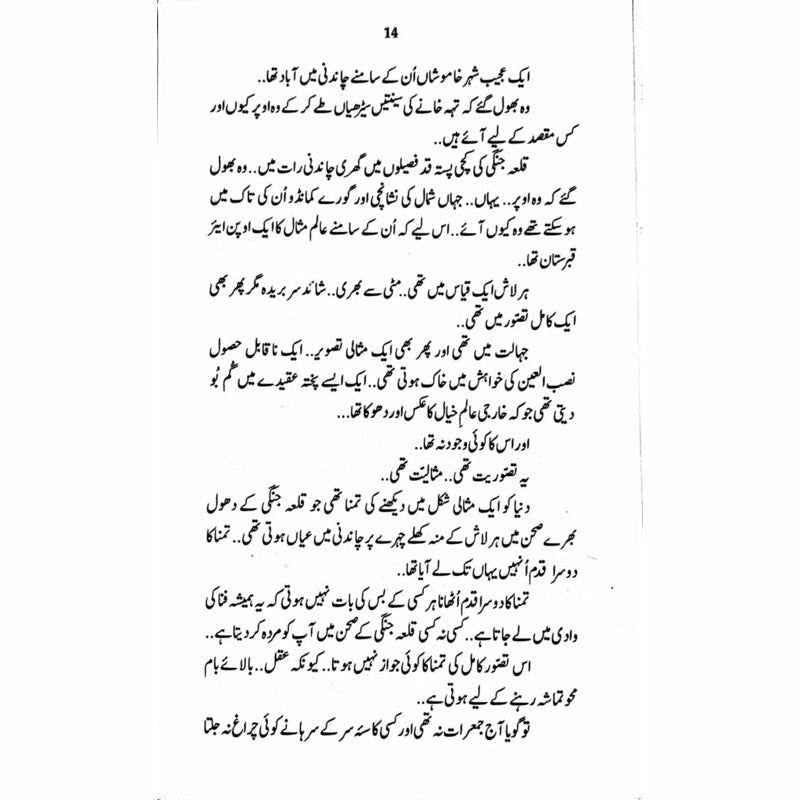 14
ایک عجیب شہر خاموشاں اُن کے سامنے چاندنی میں آباد تھا..
وہ بھول گئے کہ تہہ خانے کی سینتیس سیڑھیاں طے کر کے وہ اوپر کیوں اور
کس مقصد کے لیے آئے ہیں..
قلعہ جنگی کی کچی پستہ قد فصیلوں میں گھری چاندنی رات میں.. وہ بھول
گئے کہ وہ اوپر.. یہاں.. جہاں شمال کی نشانچی اور گورے کمانڈو اُن کی تاک میں
ہو سکتے تھے وہ کیوں آئے.. اس لیے کہ اُن کے سامنے عالم مثال کا ایک اوپن ایئر
قبرستان تھا..
ہر لاش ایک قیاس میں تھی.. مٹی سے بھری.. شائد سر بریدہ مگر پھر بھی
ایک کامل تصّور میں تھی..
جہالت میں تھی اور پھر بھی ایک مثالی تصویر.. ایک ناقابل حصول
نصب العین کی خواہش میں خاک ہوتی تھی.. ایک ایسے پختہ عقیدے میں گُم بُو
دیتی تھی جو کہ خارجی عالمِ خیال کا عکس اور دھوکا تھا...
اور اس کا کوئی وجود نہ تھا..
یہ تصّوریت تھی.. مثالیّت تھی..
دنیا کو ایک مثالی شکل میں دیکھنے کی تمنا تھی جو قلعہ جنگی کے دھول
بھرے صحن میں ہر لاش کے منہ کھلے چہرے پر چاندنی میں عیاں ہوتی تھی.. تمنا کا
دوسرا قدم اُنہیں یہاں تک لے آیا تھا..
تمنا کا دوسرا قدم اُٹھانا ہر کسی کے بس کی بات نہیں ہوتی کہ یہ ہمیشہ فنا کی
وادی میں لے جاتا ہے.. کسی نہ کسی قلعہ جنگی کے صحن میں آپ کو مردہ کر دیتا ہے..
اس تصّور کامل کی تمنا کا کوئی جواز نہیں ہوتا.. کیونکہ عقل.. بالائے بام
محو تماشہ رہنے کے لیے ہوتی ہے..
تو گویا آج جمعرات نہ تھی اور کسی کاسۂ سر کے سرہانے کوئی چراغ نہ جلتا